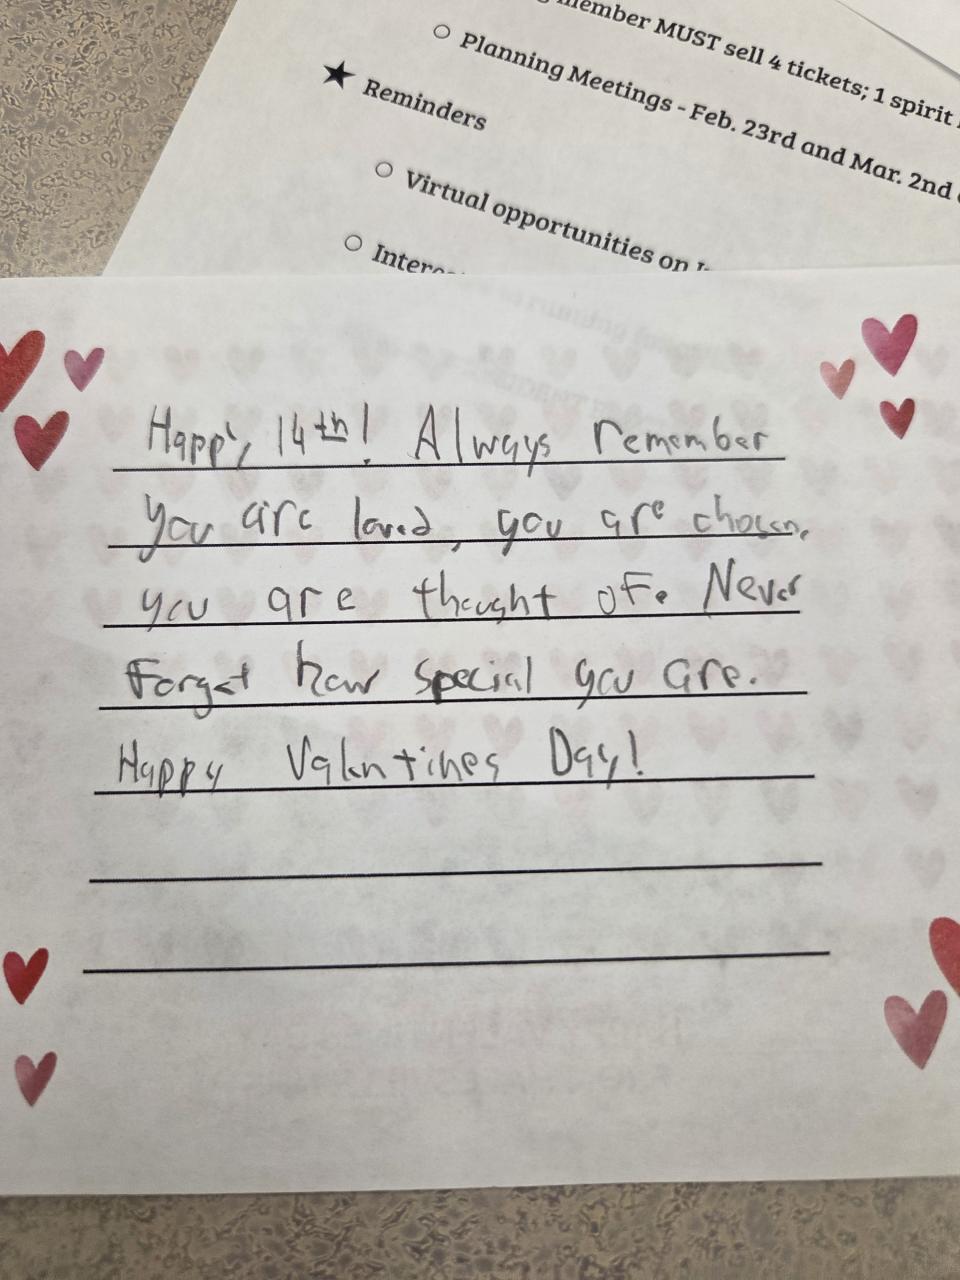 member MUST sell 4 tickets; 1 spirit
○ Planning Meetings - Feb. 23rd and Mar. 2nd
★ Reminders
○ Virtual opportunities on
○
Happy 14th! Always remember
you are loved, you are chosen,
you are thought of. Never
Forget how special you are.
Happy Valentines Day!